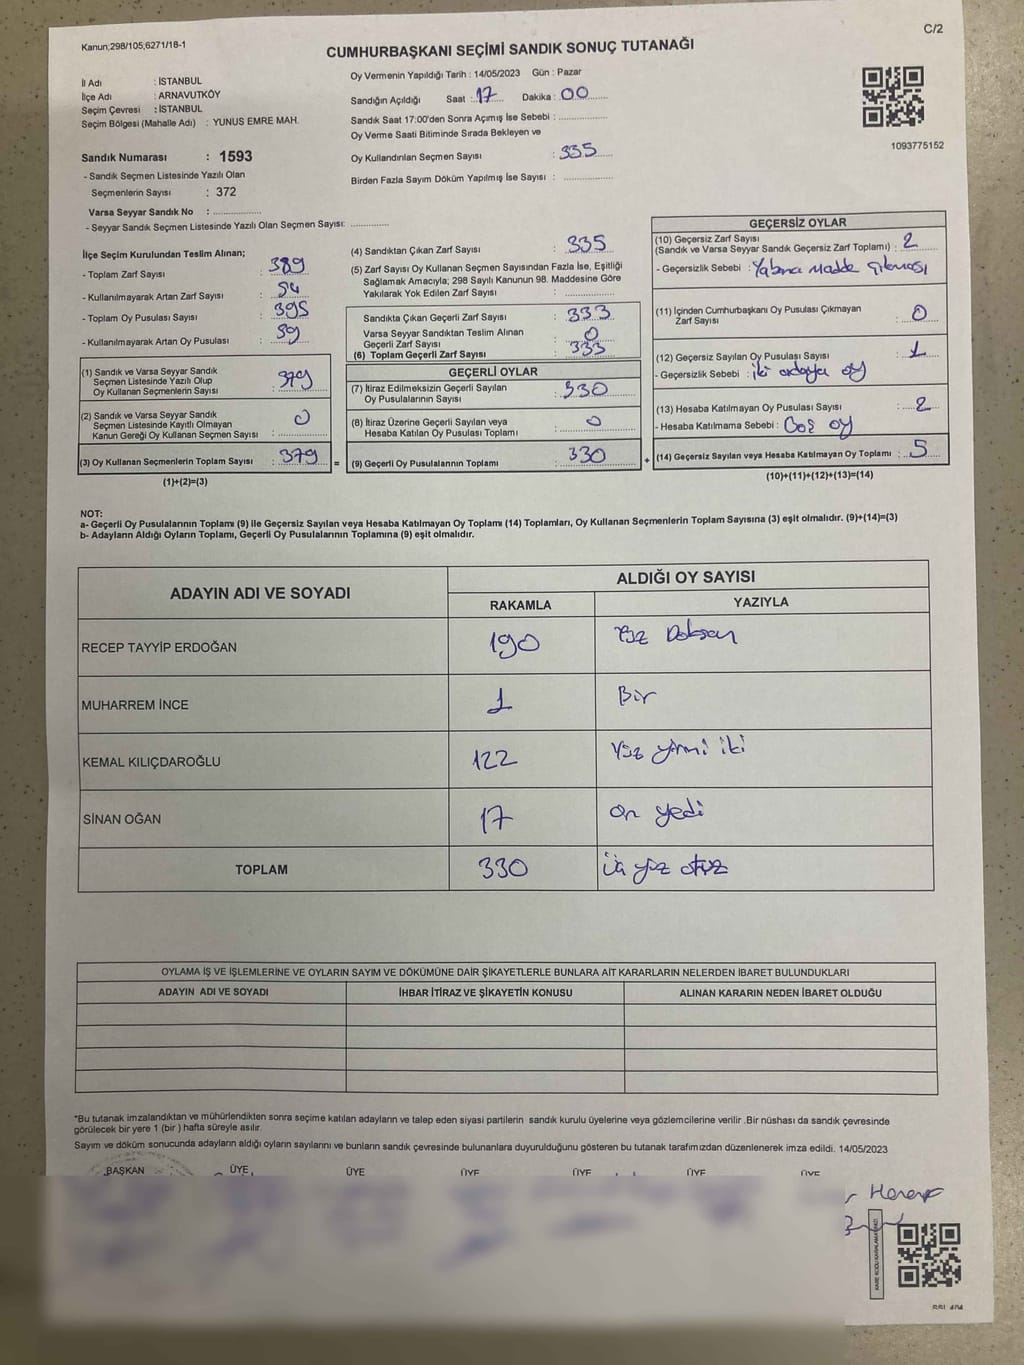 Kanun;298/105,6271/18-1
C/2
CUMHURBAŞKANI SEÇİMİ SANDIK SONUÇ TUTANAĞI
İl Adı : İSTANBUL
İlçe Adı : ARNAVUTKÖY
Seçim Çevresi : İSTANBUL
Seçim Bölgesi (Mahalle Adı) : YUNUS EMRE MAH.
Oy Vermenin Yapıldığı Tarih : 14/05/2023 Gün : Pazar
Sandığın Açıldığı Saat : 17 Dakika : 00
Sandık Saat 17:00'den Sonra Açımış İse Sebebi :
Oy Verme Saati Bitiminde Sırada Bekleyen ve
Oy Kullandırılan Seçmen Sayısı : 335
Birden Fazla Sayım Döküm Yapılmış İse Sayısı :
1093775152
Sandık Numarası : 1593
- Sandık Seçmen Listesinde Yazılı Olan
Seçmenlerin Sayısı : 372
Varsa Seyyar Sandık No :
- Seyyar Sandık Seçmen Listesinde Yazılı Olan Seçmen Sayısı:
İlçe Seçim Kurulundan Teslim Alınan;
- Toplam Zarf Sayısı : 389
- Kullanılmayarak Artan Zarf Sayısı : 54
- Toplam Oy Pusulası Sayısı : 395
- Kullanılmayarak Artan Oy Pusulası : 59
(1) Sandık ve Varsa Seyyar Sandık
Seçmen Listesinde Yazılı Olup
Oy Kullanan Seçmenlerin Sayısı : 379
(2) Sandık ve Varsa Seyyar Sandık
Seçmen Listesinde Kayıtlı Olmayan
Kanun Gereği Oy Kullanan Seçmen Sayısı : 0
(3) Oy Kullanan Seçmenlerin Toplam Sayısı : 379
(1)+(2)=(3)
(4) Sandıktan Çıkan Zarf Sayısı : 335
(5) Zarf Sayısı Oy Kullanan Seçmen Sayısından Fazla İse, Eşitliği
Sağlamak Amacıyla; 298 Sayılı Kanunun 98. Maddesine Göre
Yakılarak Yok Edilen Zarf Sayısı :
Sandıkta Çıkan Geçerli Zarf Sayısı : 333
Varsa Seyyar Sandıktan Teslim Alınan
Geçerli Zarf Sayısı : 0
(6) Toplam Geçerli Zarf Sayısı : 333
GEÇERLİ OYLAR
(7) İtiraz Edilmeksizin Geçerli Sayılan
Oy Pusulalarının Sayısı : 330
(8) İtiraz Üzerine Geçerli Sayılan veya
Hesaba Katılan Oy Pusulası Toplamı : 0
= (9) Geçerli Oy Pusulalarının Toplamı : 330
GEÇERSİZ OYLAR
(10) Geçersiz Zarf Sayısı
(Sandık ve Varsa Seyyar Sandık Geçersiz Zarf Toplamı) : 2
- Geçersizlik Sebebi : Yabancı Madde Çıkması
(11) İçinden Cumhurbaşkanı Oy Pusulası Çıkmayan
Zarf Sayısı : 0
(12) Geçersiz Sayılan Oy Pusulası Sayısı : 1
- Geçersizlik Sebebi : iki adaya oy
(13) Hesaba Katılmayan Oy Pusulası Sayısı : 2
- Hesaba Katılmama Sebebi : Boş oy
+ (14) Geçersiz Sayılan veya Hesaba Katılmayan Oy Toplamı : 5
(10)+(11)+(12)+(13)=(14)
NOT:
a- Geçerli Oy Pusulalarının Toplamı (9) ile Geçersiz Sayılan veya Hesaba Katılmayan Oy Toplamı (14) Toplamları, Oy Kullanan Seçmenlerin Toplam Sayısına (3) eşit olmalıdır. (9)+(14)=(3)
b- Adayların Aldığı Oyların Toplamı, Geçerli Oy Pusulalarının Toplamına (9) eşit olmalıdır.
ADAYIN ADI VE SOYADI ALDIĞI OY SAYISI
RAKAMLA YAZIYLA
RECEP TAYYİP ERDOĞAN 190 Yüz Doksan
MUHARREM İNCE 1 Bir
KEMAL KILIÇDAROĞLU 122 Yüz yirmi iki
SİNAN OĞAN 17 On yedi
TOPLAM 330 Üç yüz otuz
OYLAMA İŞ VE İŞLEMLERİNE VE OYLARIN SAYIM VE DÖKÜMÜNE DAİR ŞİKAYETLERLE BUNLARA AİT KARARLARIN NELERDEN İBARET BULUNDUKLARI
ADAYIN ADI VE SOYADI İHBAR İTİRAZ VE ŞİKAYETİN KONUSU ALINAN KARARIN NEDEN İBARET OLDUĞU
*Bu tutanak imzalandıktan ve mühürlendikten sonra seçime katılan adayların ve talep eden siyasi partilerin sandık kurulu üyelerine veya gözlemcilerine verilir .Bir nüshası da sandık çevresinde
görülecek bir yere 1 (bir ) hafta süreyle asılır.
Sayım ve döküm sonucunda adayların aldığı oyların sayılarını ve bunların sandık çevresinde bulunanlara duyurulduğunu gösteren bu tutanak tarafımızdan düzenlenerek imza edildi. 14/05/2023
BAŞKAN ÜYE ÜYE ÜYE ÜYE ÜYE ÜYE